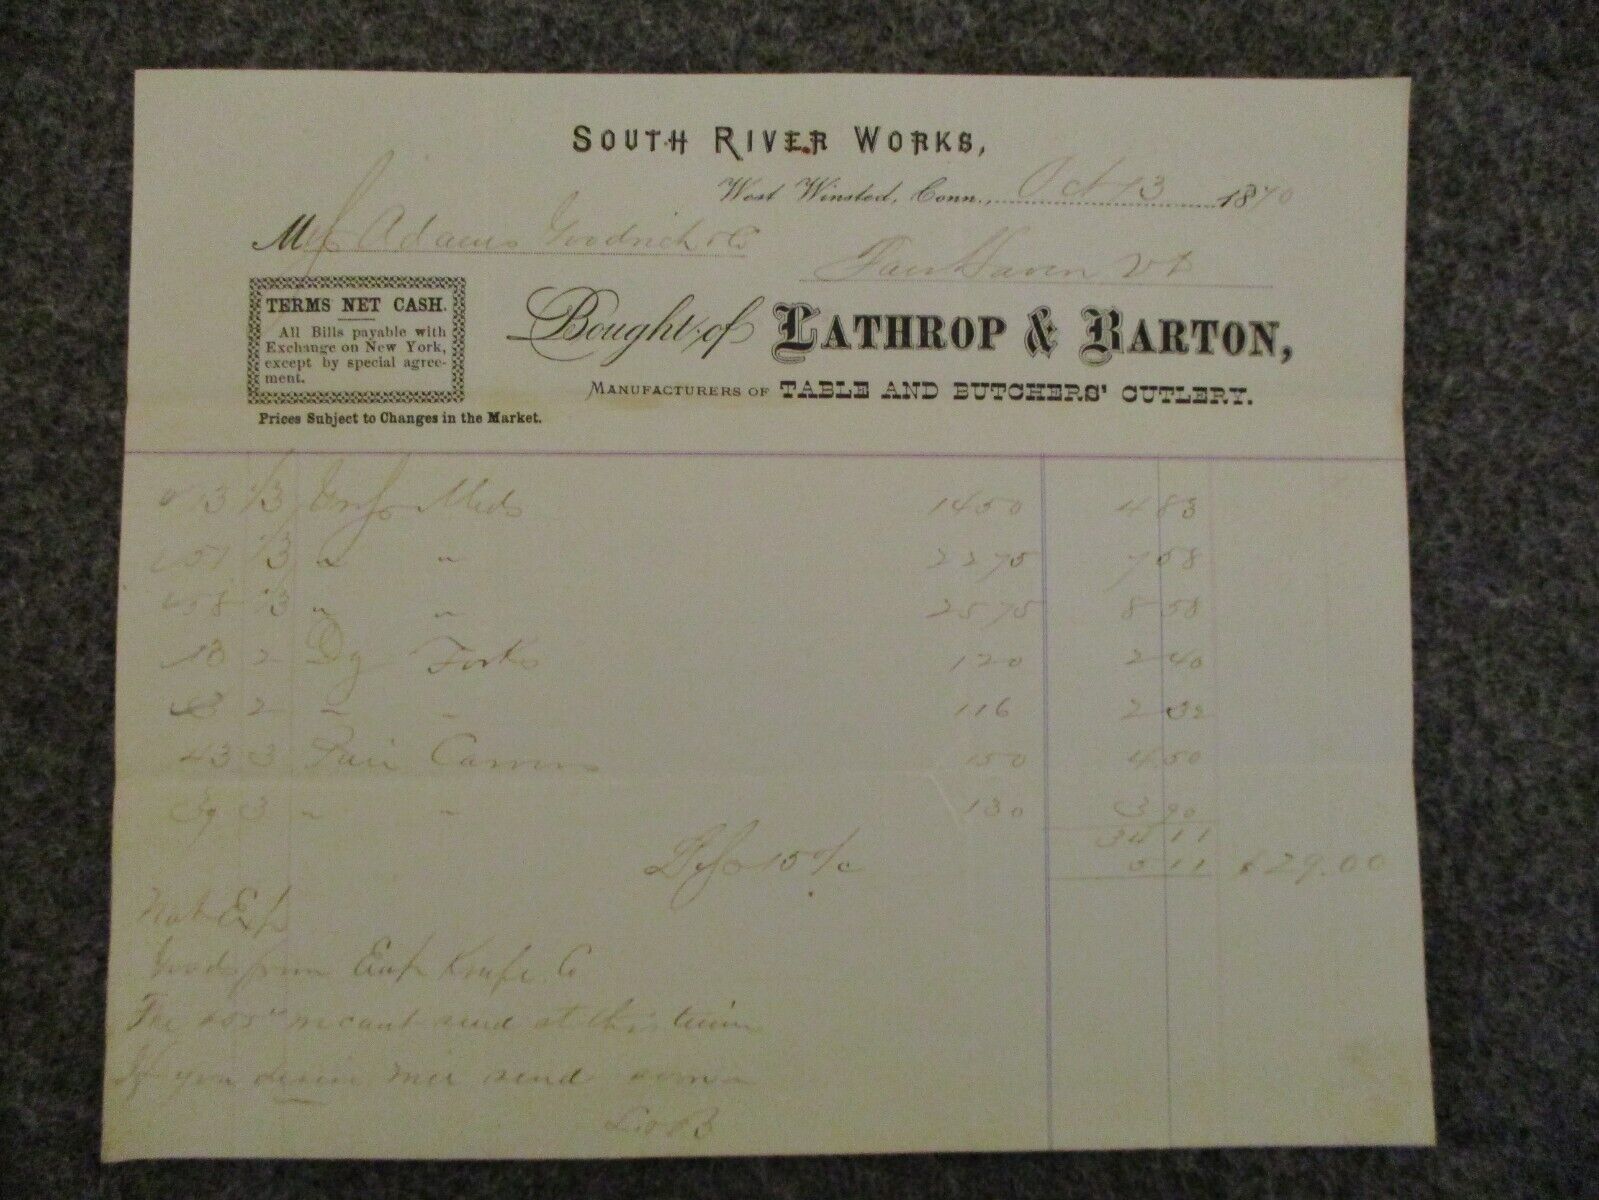 SOUTH RIVER WORKS,
West Winsted, Conn., Oct 13 1870
Mess Adams Goodrich & Co
Fair Haven Vt
TERMS NET CASH.
All Bills payable with
Exchange on New York,
except by special agree-
ment.
Prices Subject to Changes in the Market.
Bought of LATHROP & BARTON,
MANUFACTURERS OF TABLE AND BUTCHERS' CUTLERY.
13 1/3 Meds 1450 4 83
57 1/3 " " 2275 7 58
58 1/3 " " 2575 8 58
13 2 Dz Forks 120 2 40
2 " " 116 2 32
43 3 Pair Carvers 150 4 50
39 3 " " 130 3 90
34 11
Less 15 % 5 11 $29.00
Nat Exp
Goods from Emp Knife Co
The we cant send at this time
If you desire send
L & B